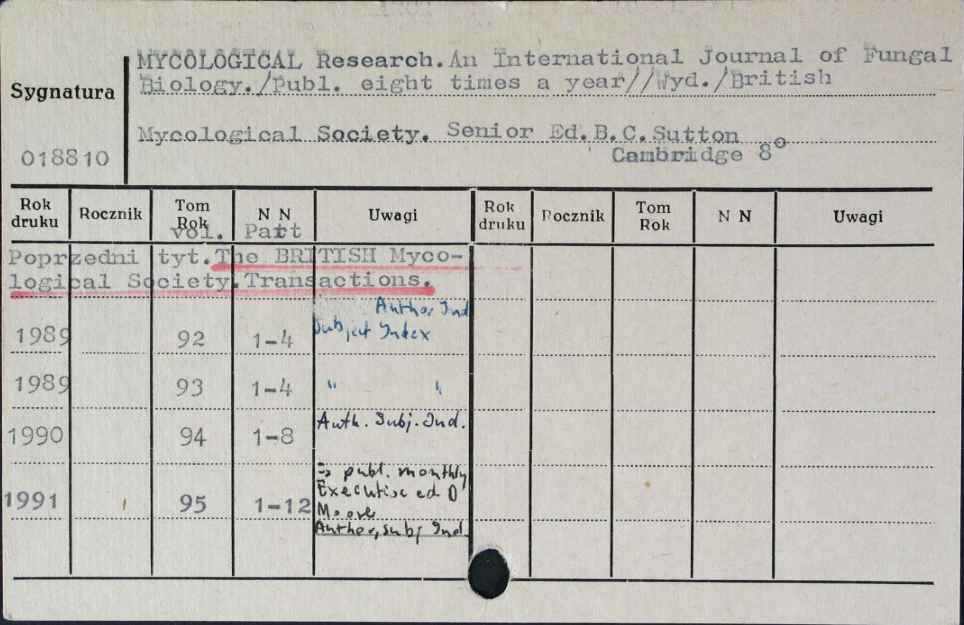 MYCOLOGICAL Research.An International Journal of Fungal
Sygnatura Biology./Publ. eight times a year//Wyd./British
Mycological Society. Senior Ed.B.C.Sutton
018810 Cambridge 8°
Rok druku Rocznik Tom Rok N N Uwagi Rok druku Rocznik Tom Rok N N Uwagi
vol. Part
Poprzedni tyt.The BRITISH Myco-
logical Society.Transactions.
Author Ind
Subject Index
1989 92 1-4
1989 93 1-4 " "
1990 94 1-8 Auth. Subj. Ind.
publ. monthly
Executive ed D
1991 95 1-12 Moore
Author, subj Ind.